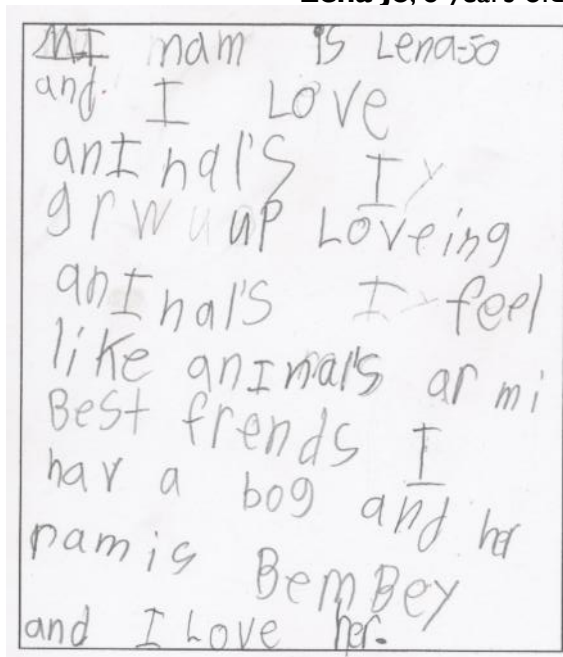 MI nam is Lena-Jo
and. I LOVE
anInal's I
grw up Loveing
anInal's I feel
like anImal's ar mi
Best frends I
hav a bog and her
nam is BemBey
and I Love her.